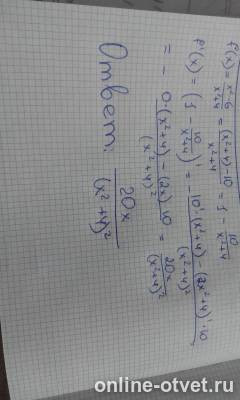 f(x) = x²-6 / x²+4 = (x²+4)-10 / x²+4 = 1 - 10 / x²+4
f'(x) = (1 - 10 / x²+4)' = - 10'·(x²+4) - (x²+4)'·10 / (x²+4)²
= - 0·(x²+4) - (2x)·10 / (x²+4)² = 20x / (x²+4)²
Ответ: 20x / (x²+4)²
online-otvet.ru